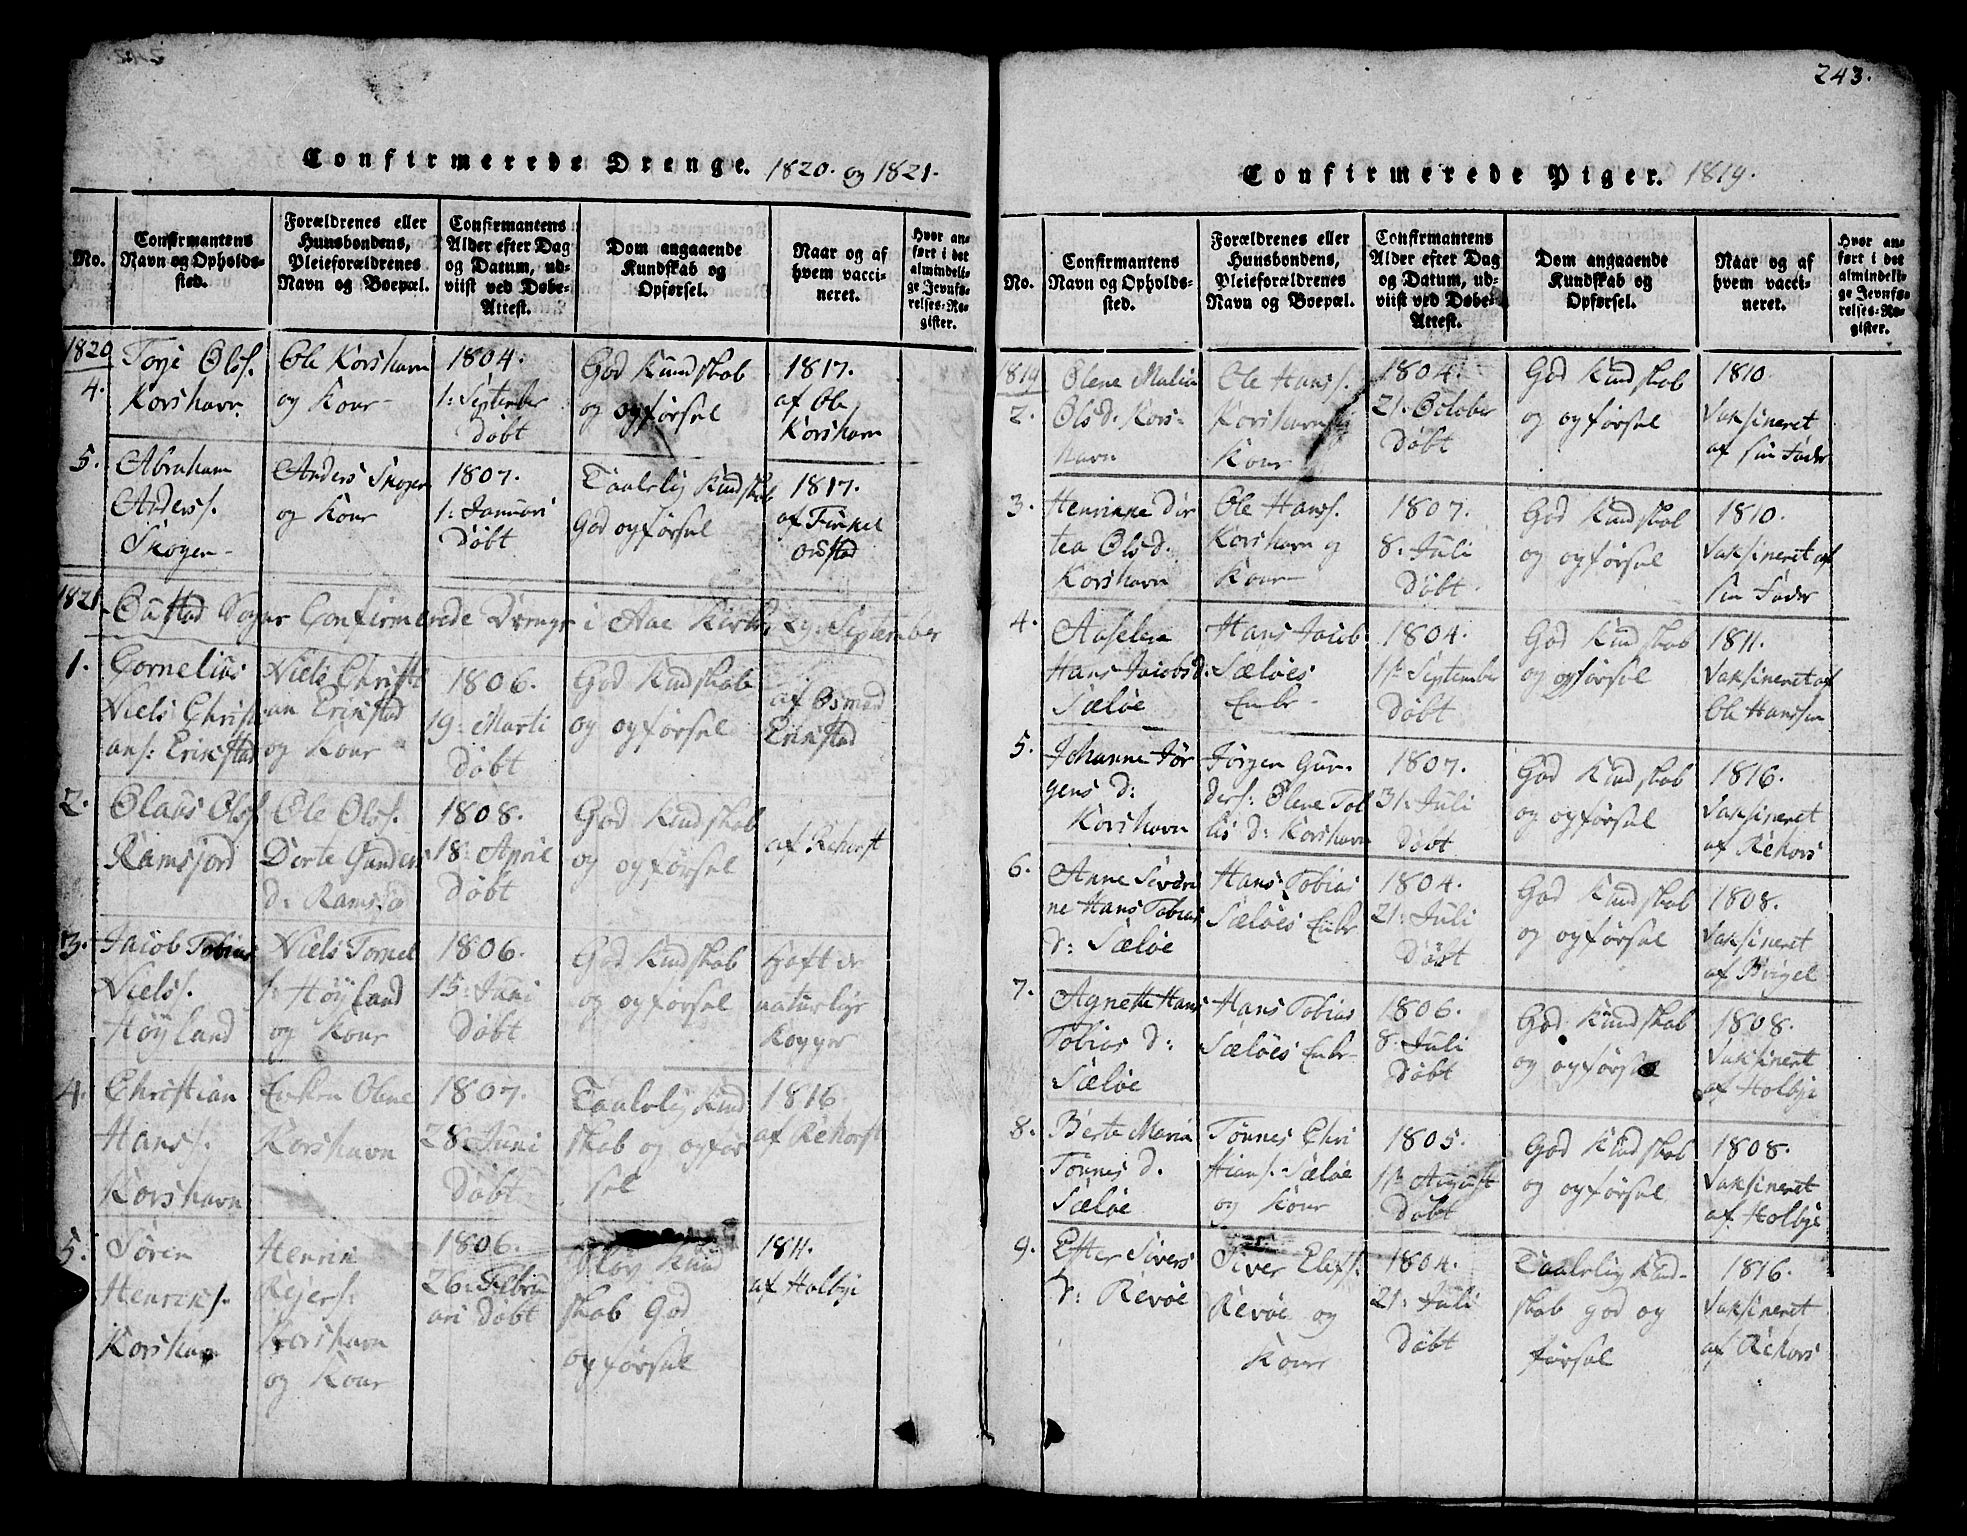 Confirmerede Drenge. 1820. og 1821.
No.
Confirmantens
Navn og Opholds-
sted.
Forældrenes eller
Huusbondens,
Pleieforældrenes
Navn og Boepæl.
Confirmantens
Alder efter Dag
og Datum, ud-
viist ved Døbe-
Attest.
Dom angaaende
Kundskab og
Opførsel.
Naar og af
hvem vacci-
neret.
Hvor an-
ført i det
almindeli-
ge Jevnfø-
relses-Re-
gister.
1820
4.
Torje Ols.
Korshavn
Ole Korshavn
og Kone
1804.
1: September
Døbt
God Kundskab
og opførsel
1817.
af Ole
Korshavn
5.
Abraham
Anders.
Skogen
Anders Skogen
og Kone
1807.
1: Januari
Døbt
Taalelig Kundskab
God opførsel
1817.
af Tinkel
Oustad
1821
Oustad Sogns Confirmerede Drenge i Aae Kirke 29: September
1.
Cornelius
Niels Christi
ans: Erikstad
Niels Christi
an Erikstad
og Kone
1806.
19: Marti
Døbt
God Kundskab
og opførsel
af Osmod
Erikstad
2.
Olaus Ols.
Ramsjord
Ole Ols.
Dorte Gunders
d: Ramsjo
1808.
18: April
Døbt
God Kundskab
og opførsel
af Rehorst
3.
Jacob Tobias
Niels.
Höyland
Niels Tornel
s: Höyland
og Kone
1806.
15: Juni
Døbt
God Kundskab
og opførsel
Haft de
naturlige
Kopper
4.
Christian
Hans.
Korshavn
Enken Olene
Korshavn
1807.
28: Juni
Døbt
Taalelig Kund
skab og opfør
sel
1816
af Rehorst
5.
Søren
Henriks.
Korshavn
Henrik
Rejers:
Korshavn
og Kone
1806.
26: Febru
ari Døbt
Slov Kund
skab God
opførsel
1811.
af Holbye
243.
Confirmerede Piger. 1819.
No.
Confirmantens
Navn og Opholds-
sted.
Forældrenes eller
Huusbondens,
Pleieforældrenes
Navn og Boepæl.
Confirmantens
Alder efter Dag
og Datum, ud-
viist ved Døbe-
Attest.
Dom angaaende
Kundskab og
Opførsel.
Naar og af
hvem vacci-
neret.
Hvor an-
ført i det
almindeli-
ge Jevnfø-
relses-Re-
gister.
1819
2.
Olene Malia
Ols d. Kors-
havn
Ole Hans.
Korshavn og
Kone
1804.
21: October
Døbt
God Kundskab
og opførsel
1810.
Vaksineret
af sin Fader
3.
Henrikke Dor
tea Ols d.
Korshavn
Ole Hans.
Korshavn og
Kone
1807.
8: Juli
Døbt
God Kundskab
og opførsel
1810.
Vaksineret af
sin Fader
4.
Aaselene
Hans Jacobs d:
Sæløe
Hans Jacob
Sæløes
Enke
1804.
1ste September
Døbt
God Kundskab
og opførsel
1811.
Vaksineret af
Ole Hanssen
5.
Johanne Jør
gens d:
Korshavn
Jörgen Gun-
ders: Olene Tol
lis d: Korshavn
1807.
31: Juli
Døbt
God Kundskab
og opførsel
1816.
Vaksineret
af Rehors
6.
Anne Siveri
ne Hans Tobias
d: Sæløe
Hans Tobias
Sæløes Enke
1804.
21: Juli
Døbt
God Kundskab
og opførsel
1808.
Vaksineret
af Birgel
7.
Agnette Hans
Tobias d:
Sæløe
Hans Tobias
Sæløes Enke
1806.
8: Juli
Døbt
God Kundskab
og opførsel
1808.
Vaksineret
af Holbye
8.
Berte Maria
Tönnes d.
Sæløe
Tönnes Chri
stians. Sæløe
og Kone
1805.
1ste August
Døbt
God Kundskab
og opførsel
1808.
Vaksineret
af Holbye
9.
Ester Sivers
d: Revøe
Siver Elefs.
Revøe og
Kone
1804.
21: Juli
Døbt
Taalelig Kund-
skab god op
førsel
1816.
Vaksineret
af Rehors